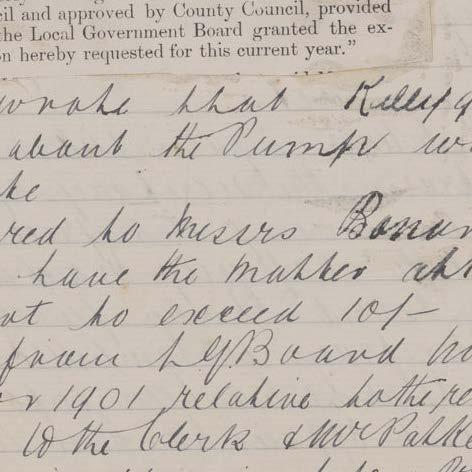 cil and approved by County Council, provided
the Local Government Board granted the ex-
on hereby requested for this current year.”
wrote that Kelly
about the Pump
ke
red to Messrs
have the matter
nt to exceed 10/-
from LGBoard
1901 relative to the re
to the Clerk & Mr